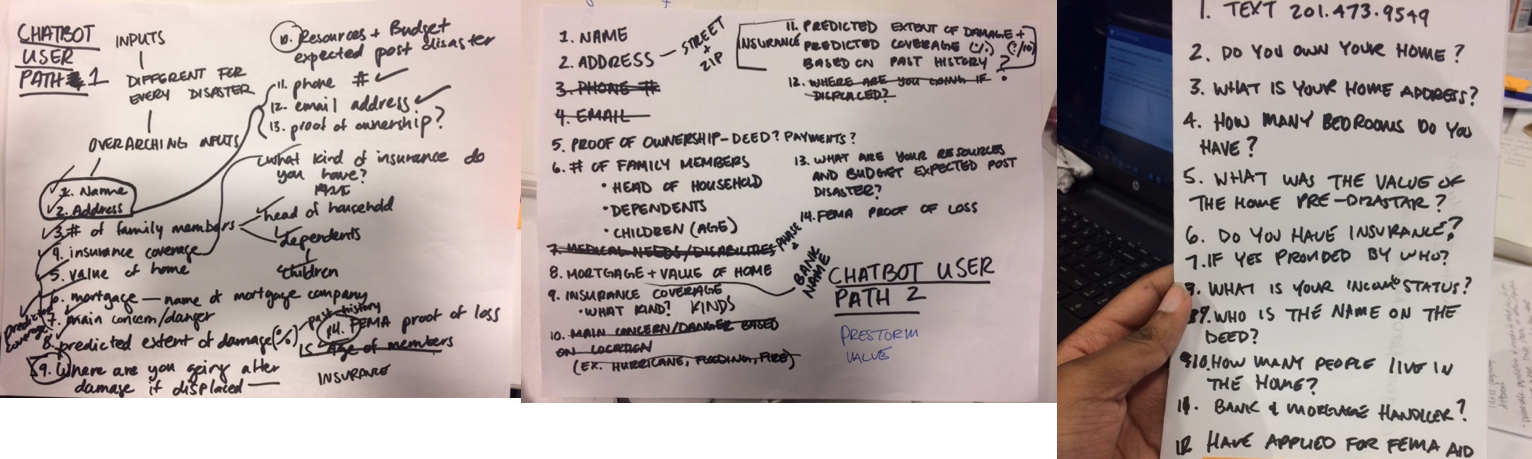 CHATBOT
USER
PATH 1
INPUTS
DIFFERENT FOR
EVERY DISASTER
OVERARCHING INPUTS
1. Name
2. Address
3. # of family members
head of household
dependents
children
4. insurance coverage
what kind of insurance do
you have?
5. value of home
6. mortgage — name of mortgage company
7. main concern/danger
8. predicted extent of damage (%) — past history
predicted
coverage
9. Where are you going after
damage if displaced
10. Resources + Budget
expected post disaster
11. phone #
12. email address
13. proof of ownership?
14. FEMA proof of loss
15. Age of members
INSURANCE
1. NAME
2. ADDRESS — STREET
+
ZIP
3. PHONE #
4. EMAIL
5. PROOF OF OWNERSHIP - DEED? PAYMENTS?
6. # OF FAMILY MEMBERS
• HEAD OF HOUSEHOLD
• DEPENDENTS
• CHILDREN (AGE)
7. MEDICAL NEEDS/DISABILITIES
8. MORTGAGE + VALUE OF HOME
BANK
NAME
9. INSURANCE COVERAGE
• WHAT KIND? KINDS
10. MAIN CONCERN/DANGER BASED
ON LOCATION
(EX. HURRICANE, FLOODING, FIRE)
INSURANCE
11. PREDICTED EXTENT OF DAMAGE +
PREDICTED COVERAGE (%)
BASED ON PAST HISTORY?
12. WHERE ARE YOU GOING IF
DISPLACED?
13. WHAT ARE YOUR RESOURCES
AND BUDGET EXPECTED POST
DISASTER?
PHASE 2
14. FEMA PROOF OF LOSS
CHATBOT USER
PATH 2
PRESTORM
VALUE
1. TEXT 201.473.9549
2. DO YOU OWN YOUR HOME?
3. WHAT IS YOUR HOME ADDRESS?
4. HOW MANY BEDROOMS DO YOU
HAVE?
5. WHAT WAS THE VALUE OF
THE HOME PRE-DIZASTAR?
6. DO YOU HAVE INSURANCE?
7. IF YES PROVIDED BY WHO?
8. WHAT IS YOUR INCOME STATUS?
9. WHO IS THE NAME ON THE
DEED?
10. HOW MANY PEOPLE LIVE IN
THE HOME?
11. BANK & MORTGAGE HANDLER?
12 HAVE APPLIED FOR FEMA AID